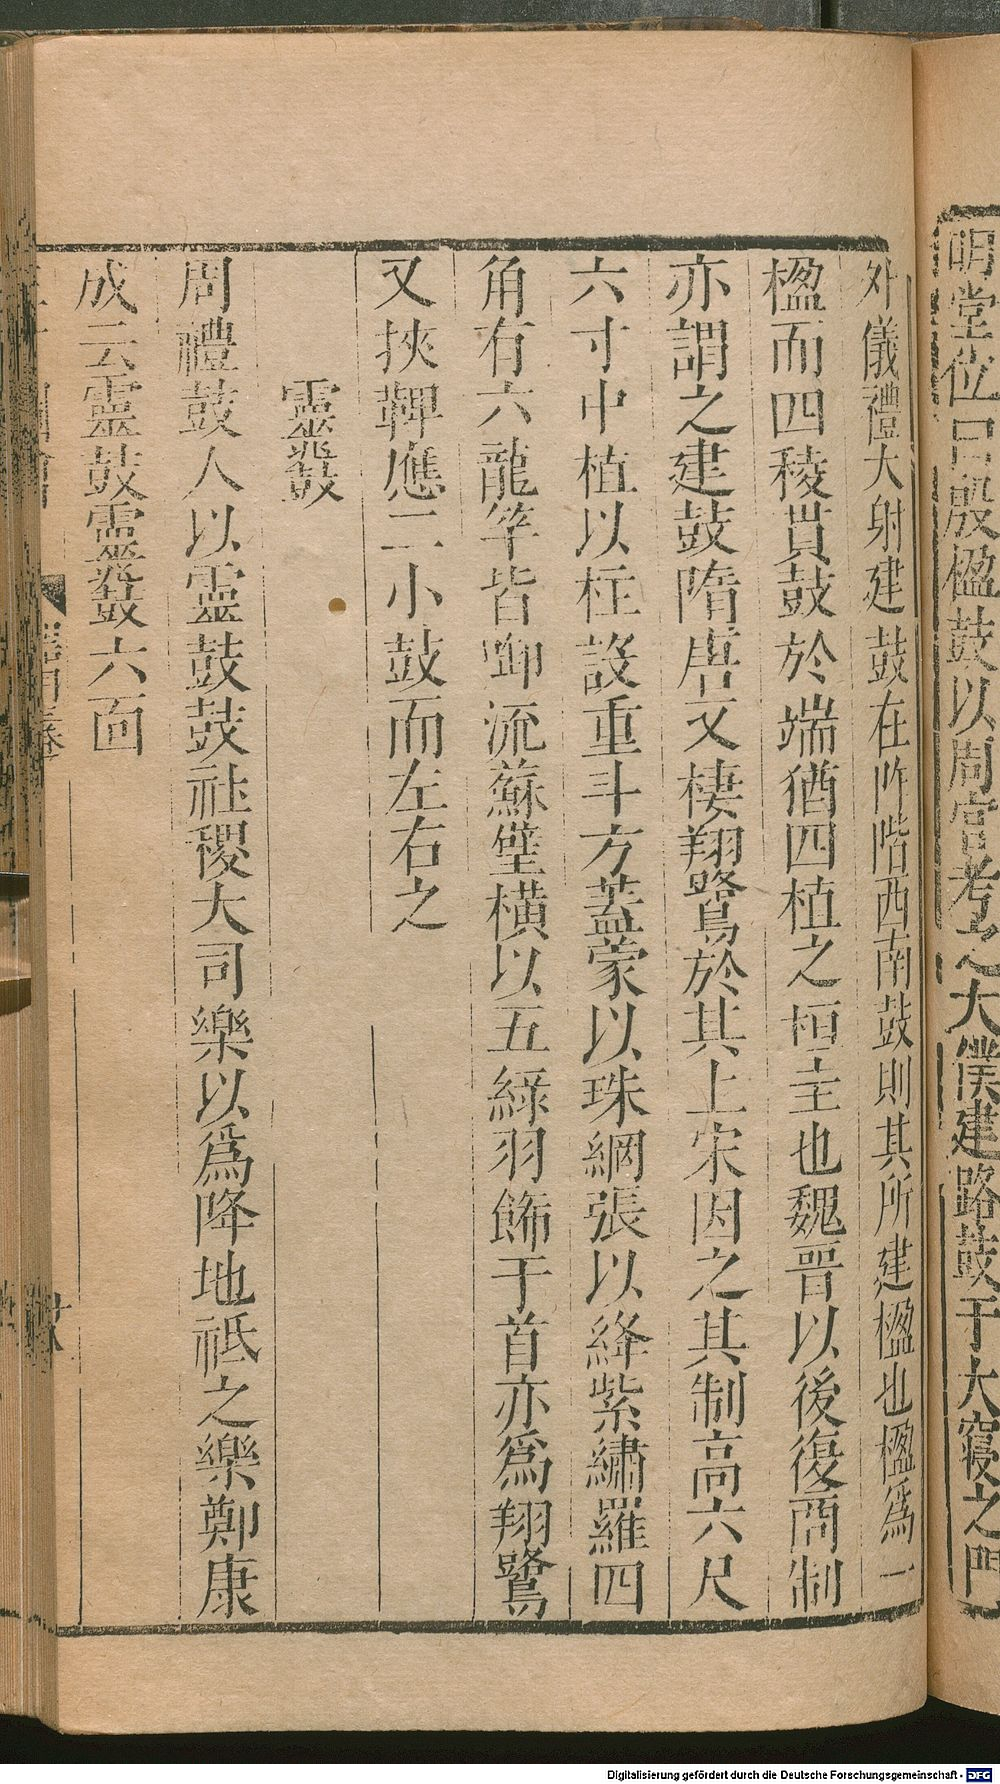 明堂位曰殷楹鼓以周官考之大僕建路鼓于大寢之門
外儀禮大射建鼓在阼階西南鼓則其所建楹也楹爲一
楹而四稜貫鼓於端猶四植之桓圭也魏晉以後復商制
亦謂之建鼓隋唐又棲翔鷺於其上宋因之其制高六尺
六寸中植以柱設重斗方蓋蒙以珠網張以絳紫繡羅四
角有六龍竿皆啣流蘇璧橫以五綵羽飾于首亦爲翔鷺
又挾鞞應二小鼓而左右之
靈鼗
周禮鼓人以靈鼓鼓社稷大司樂以爲降地祇之樂鄭康
成云靈鼓靈鼗六面
Digitalisierung gefördert durch die Deutsche Forschungsgemeinschaft - DFG